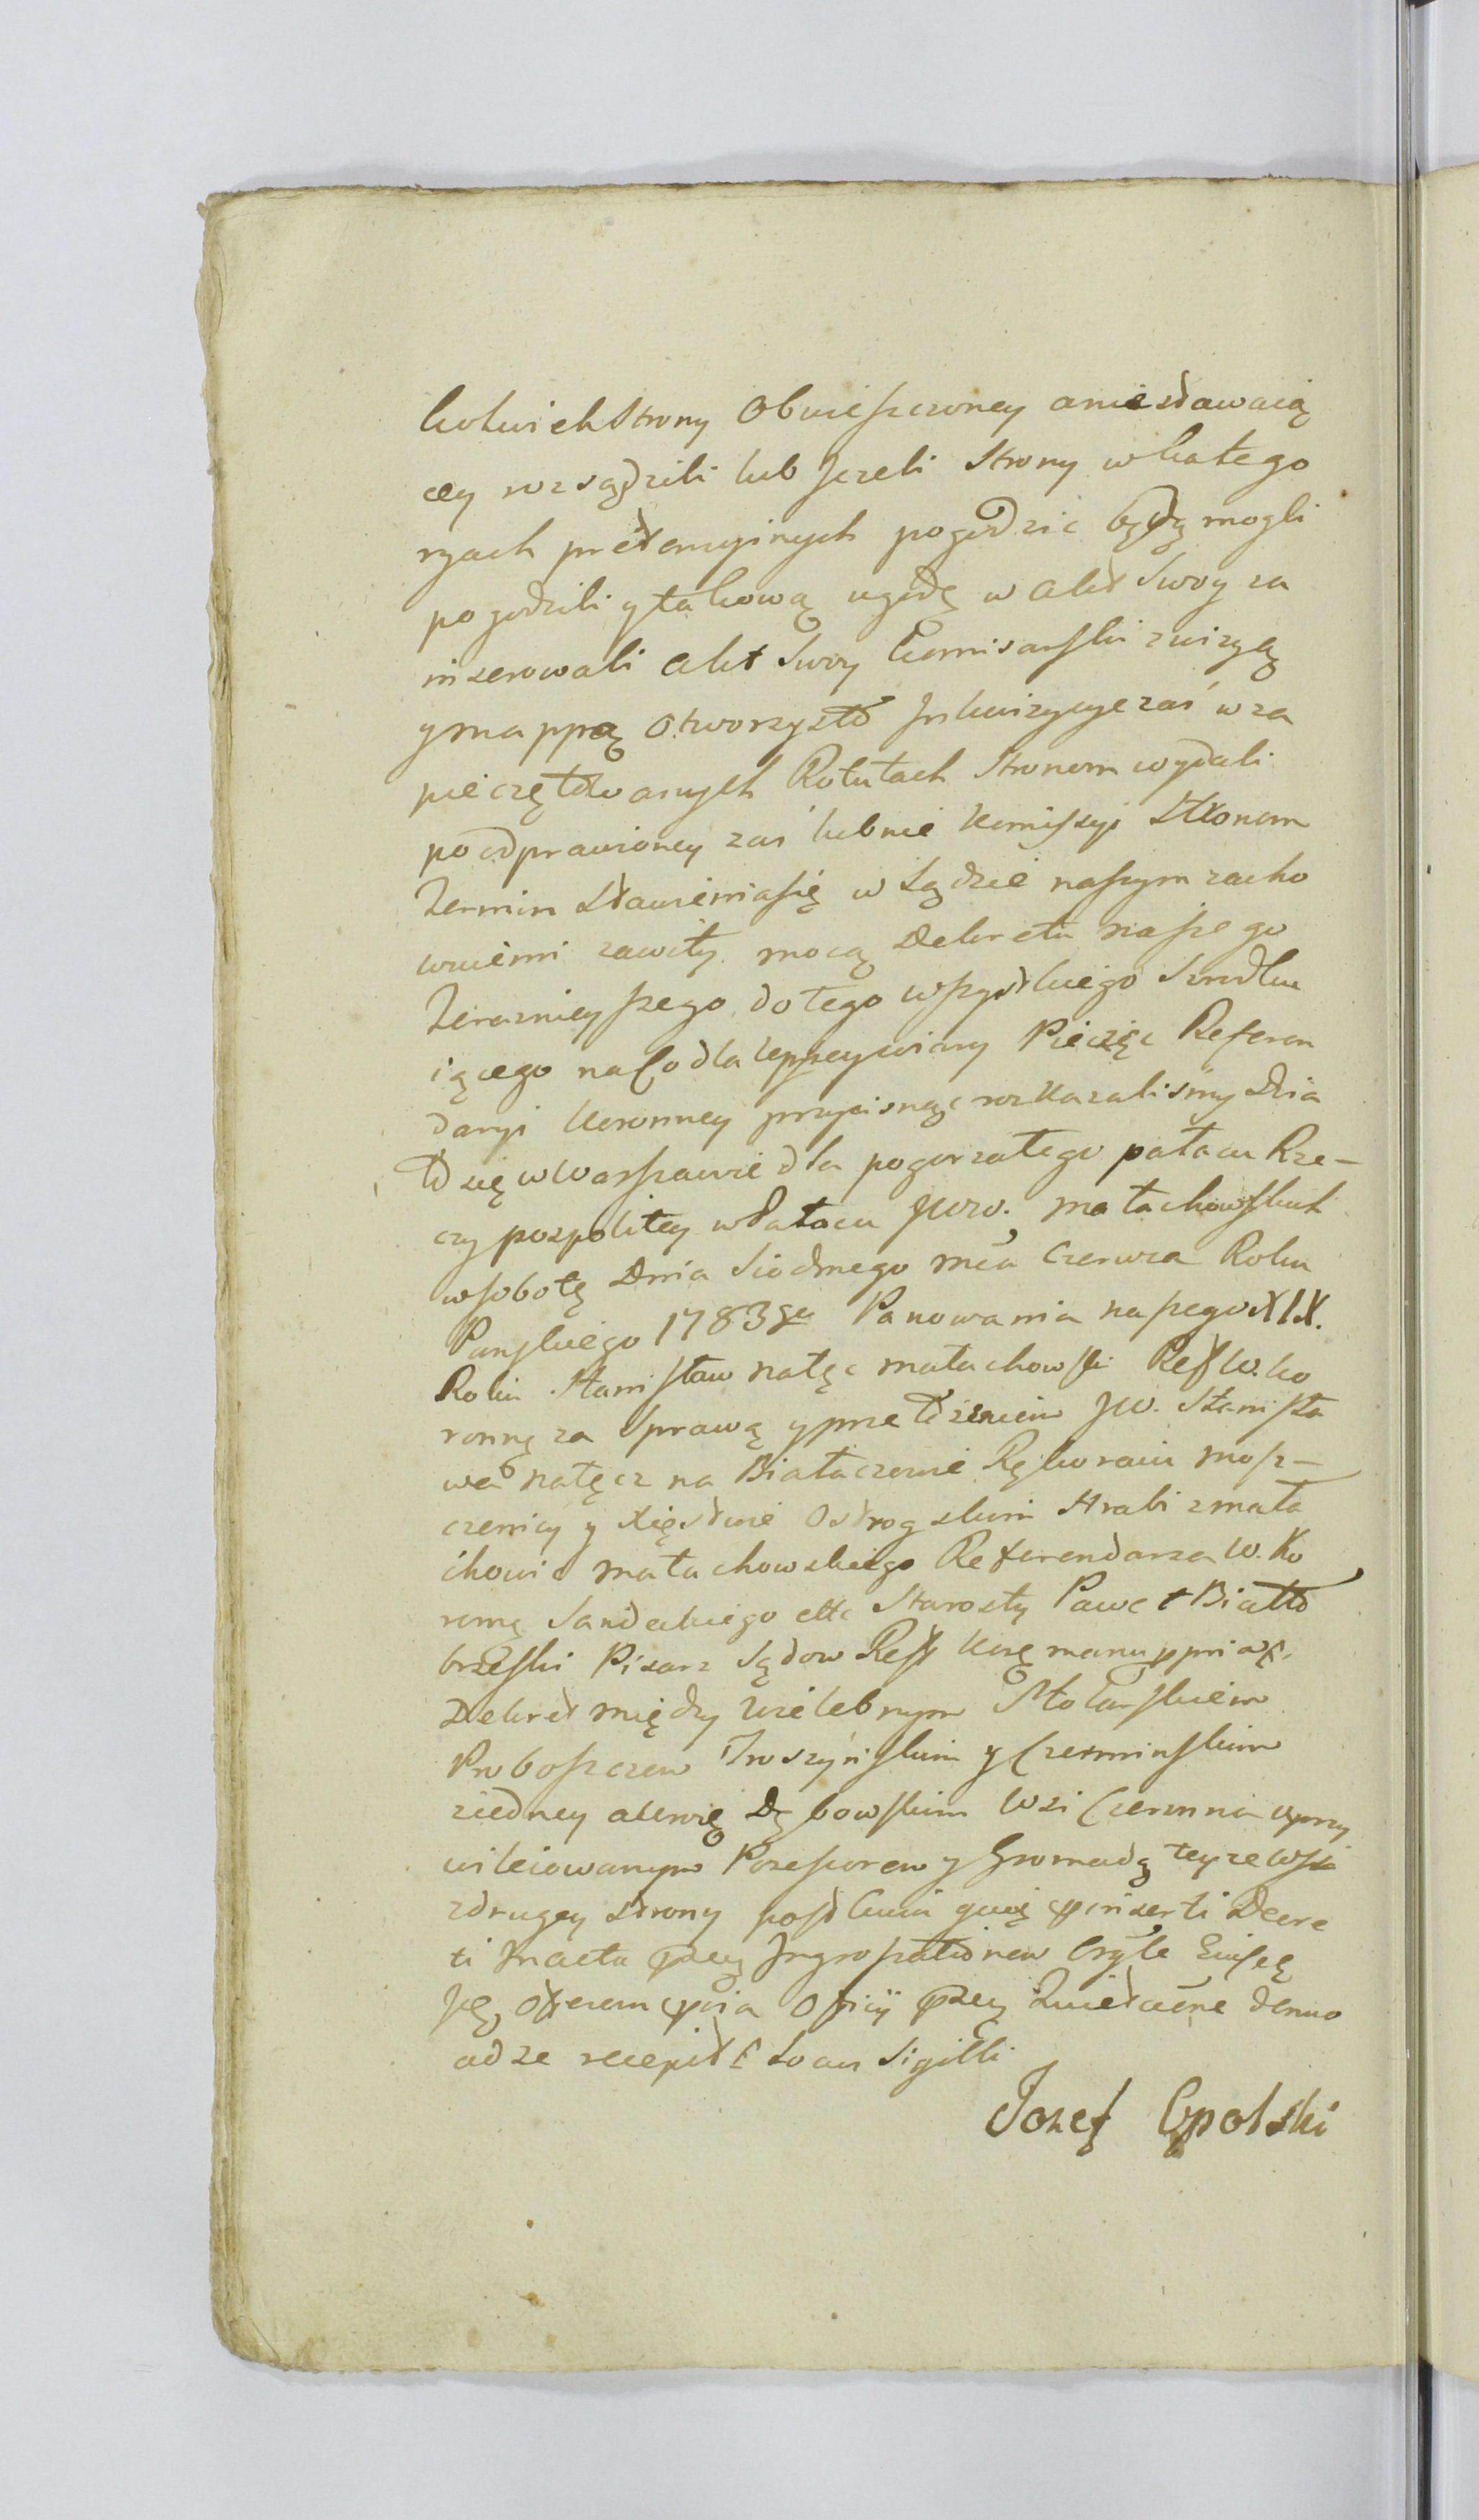 kolwiek Strony Obwieszczoney a niestawaią
cey rozsądzili lub Jezeli Strony w Katego
ryach pretensyinych pogodzić będą mogli
pogodzili y takową ugodę w Akt Swoy za
inserowali Akt Swoy Komisarski z wizyą
y mappą otworzysto Inkwizycye zaś w za
pieczętowanych Rotułach Stronom wydali
po odprawioney zaś lub nie Komissyi Stronom
Termin Stawienia się w Sądzie naszym zacho
wuiemi zawity mocą Dekretu naszego
Teraznieyszego do tego wszystkiego Srodku
iącego na Co dla lepszey wiary Pieczęć Referen
daryi Koronney przycisnąć rozkazaliśmy Dzia
ło się w Warszawie dla pogorzałego pałacu Rze-
czypospolitey w Pałacu JWW. Małachowskich
w Sobotę Dnia Siodmego mca Czerwca Roku
Panskiego 1783go Panowania naszego XIX.
Roku Stanisław nałęc małachowski Ref W. ko
ronny za Sprawą y przełożeniem JW. Stanisła
wa nałęcz na Białaczowie Rękoraiu mosz-
czenicy y Xięstwie Ostrogskim Hrabi z mała
chowic małachowskiego Referendarza W. Ko
ronng Sandeckiego etc Starosty Paweł Biało
brzeski Pisarz Sądow Reff Korg manu ppria
Dekret między Wielebnym Stolarskiem
Proboszczem Troszyńskim y Czerminskim
z iedney a Urwę Dębowskim Wsi Czermna uprzy
wileiowanym Possesorem y Gromadą teyze Wsi
z drugey strony post cuius quidę inserti Decre
ti in acta Ingrossationem Origle Eiusdę
Offerens Officii denuo
ad se recepit Locus Sigilli
Jozef Opolski